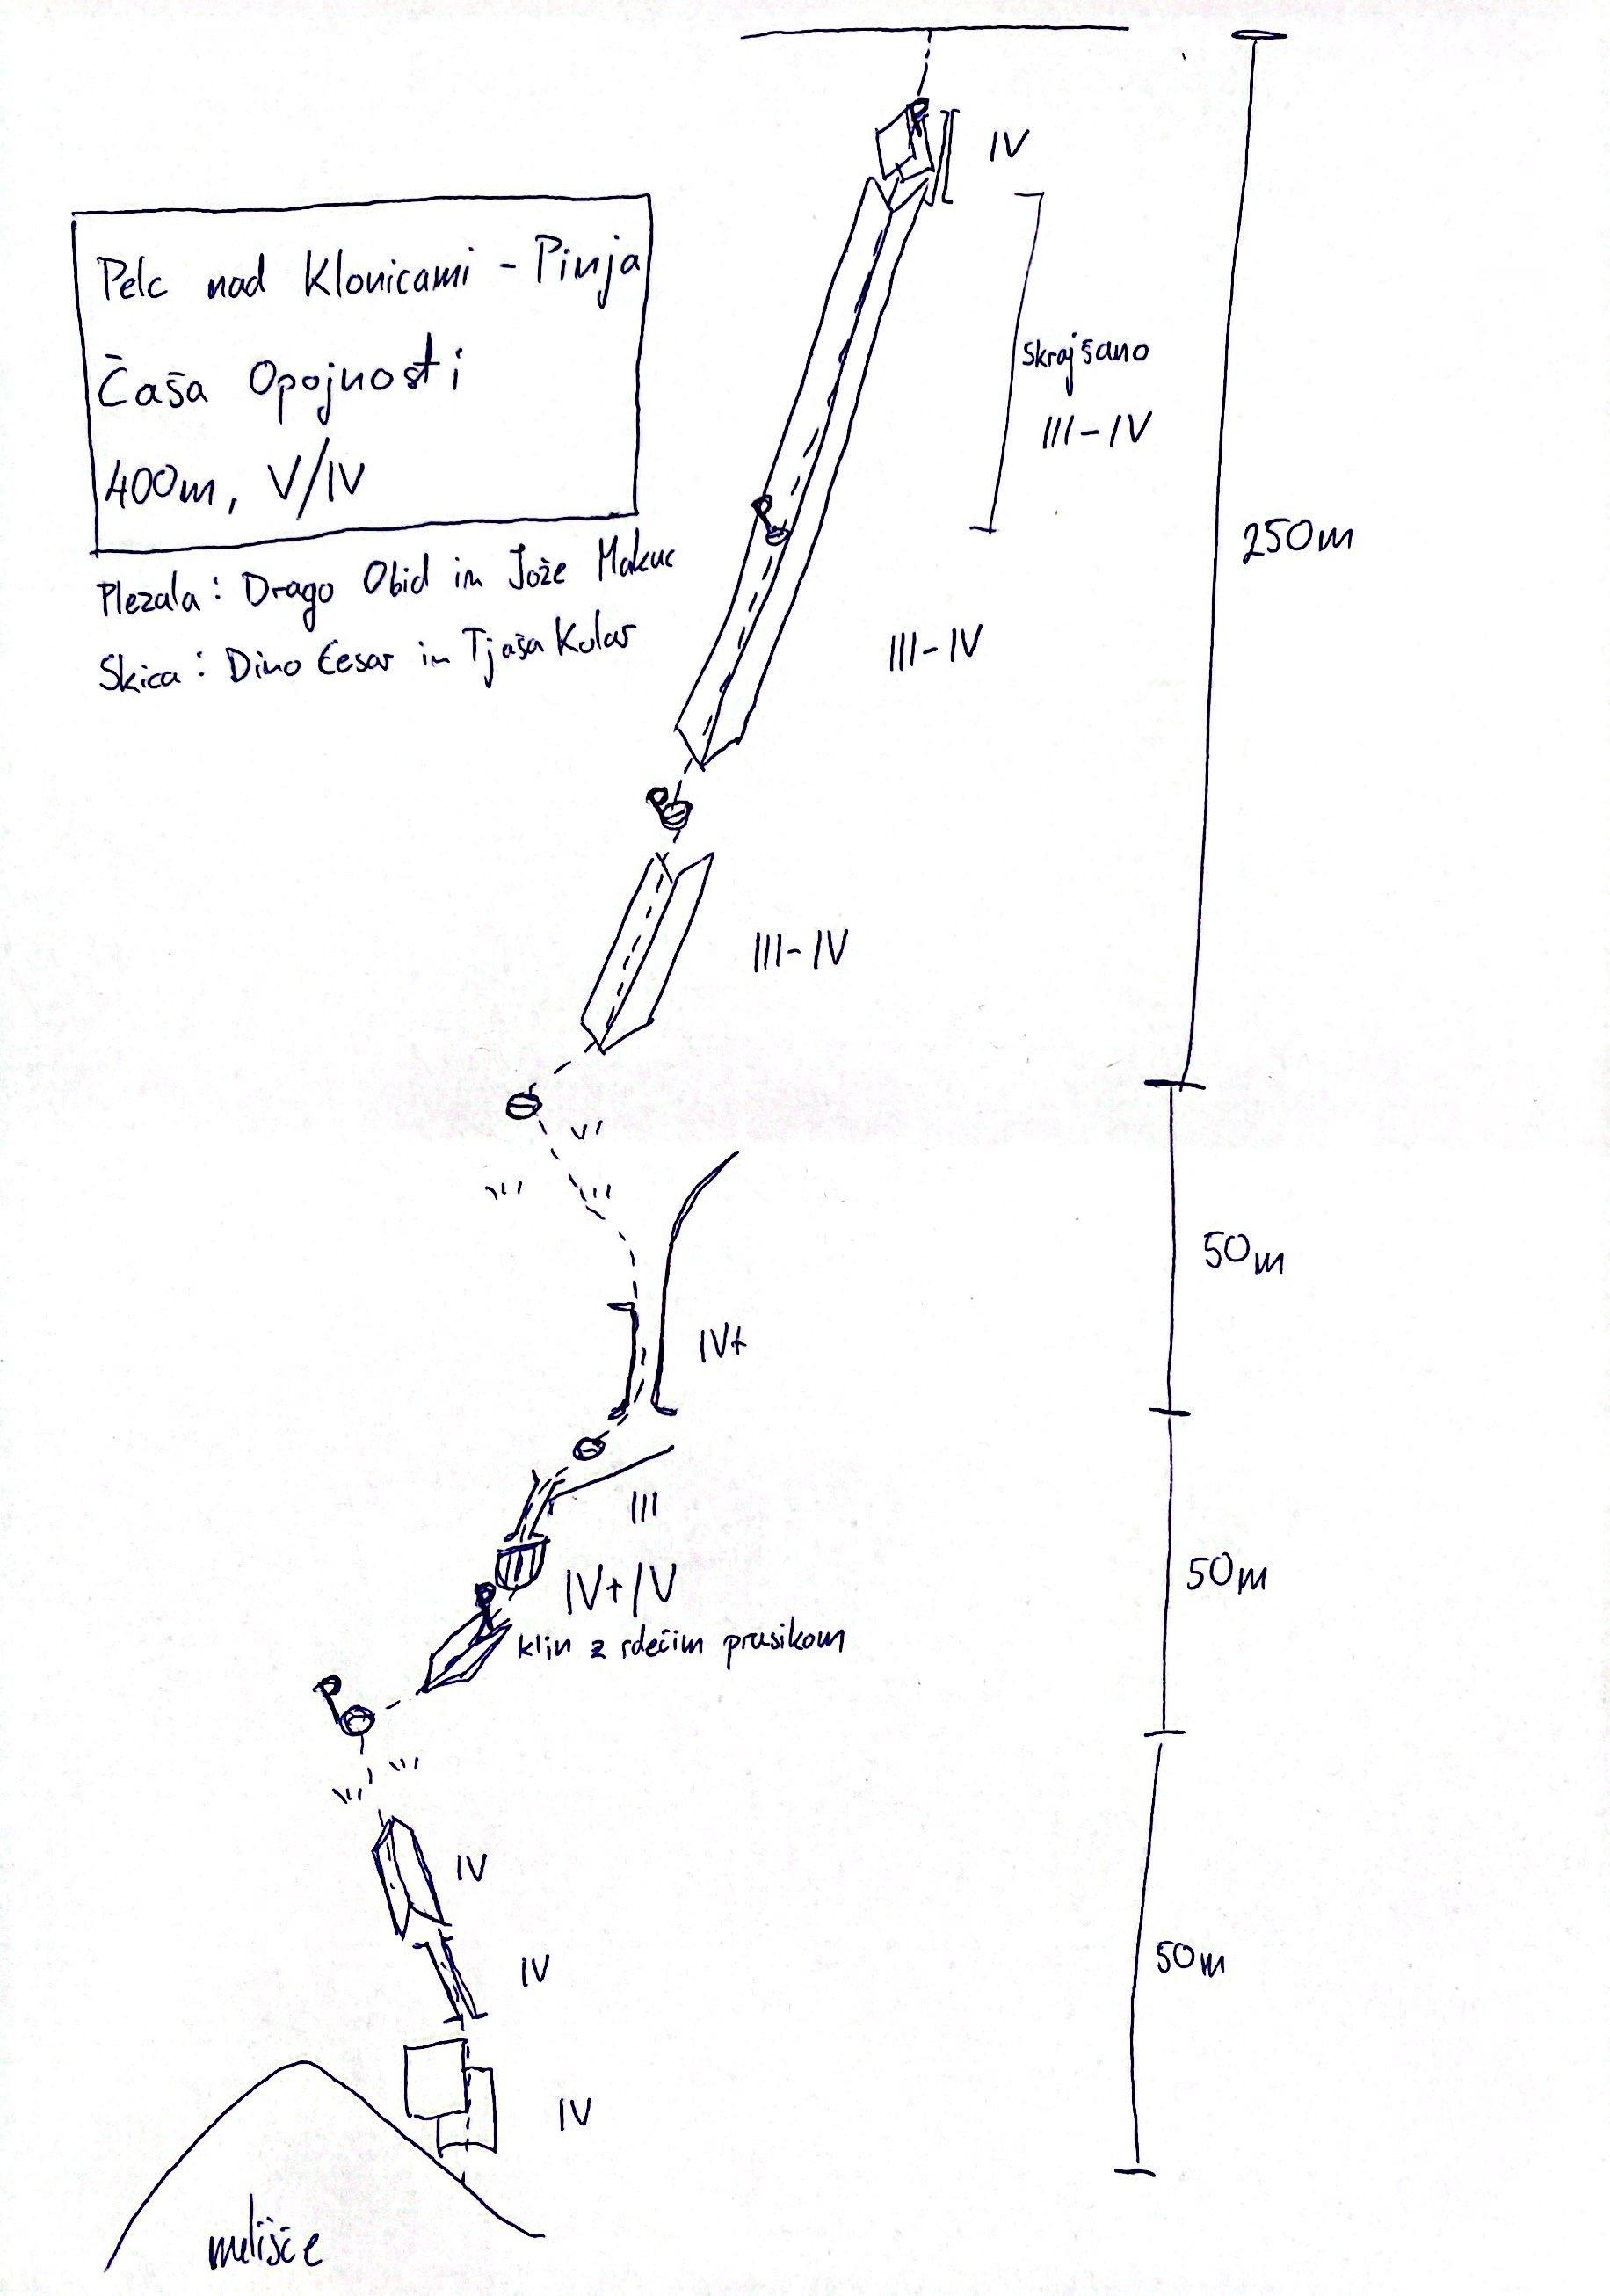 Pelc nad Klonicami - Pinja
Čaša Opojnosti
400m, V/IV
Plezala: Drago Obid in Jože Makuc
Skica: Dino Česar in Tjaša Kolar
IV
skrajšano
III-IV
250m
III-IV
III-IV
50m
IV+
III
IV+/V
50m
klin z rdečim prusikom
IV
IV
50m
IV
melišče